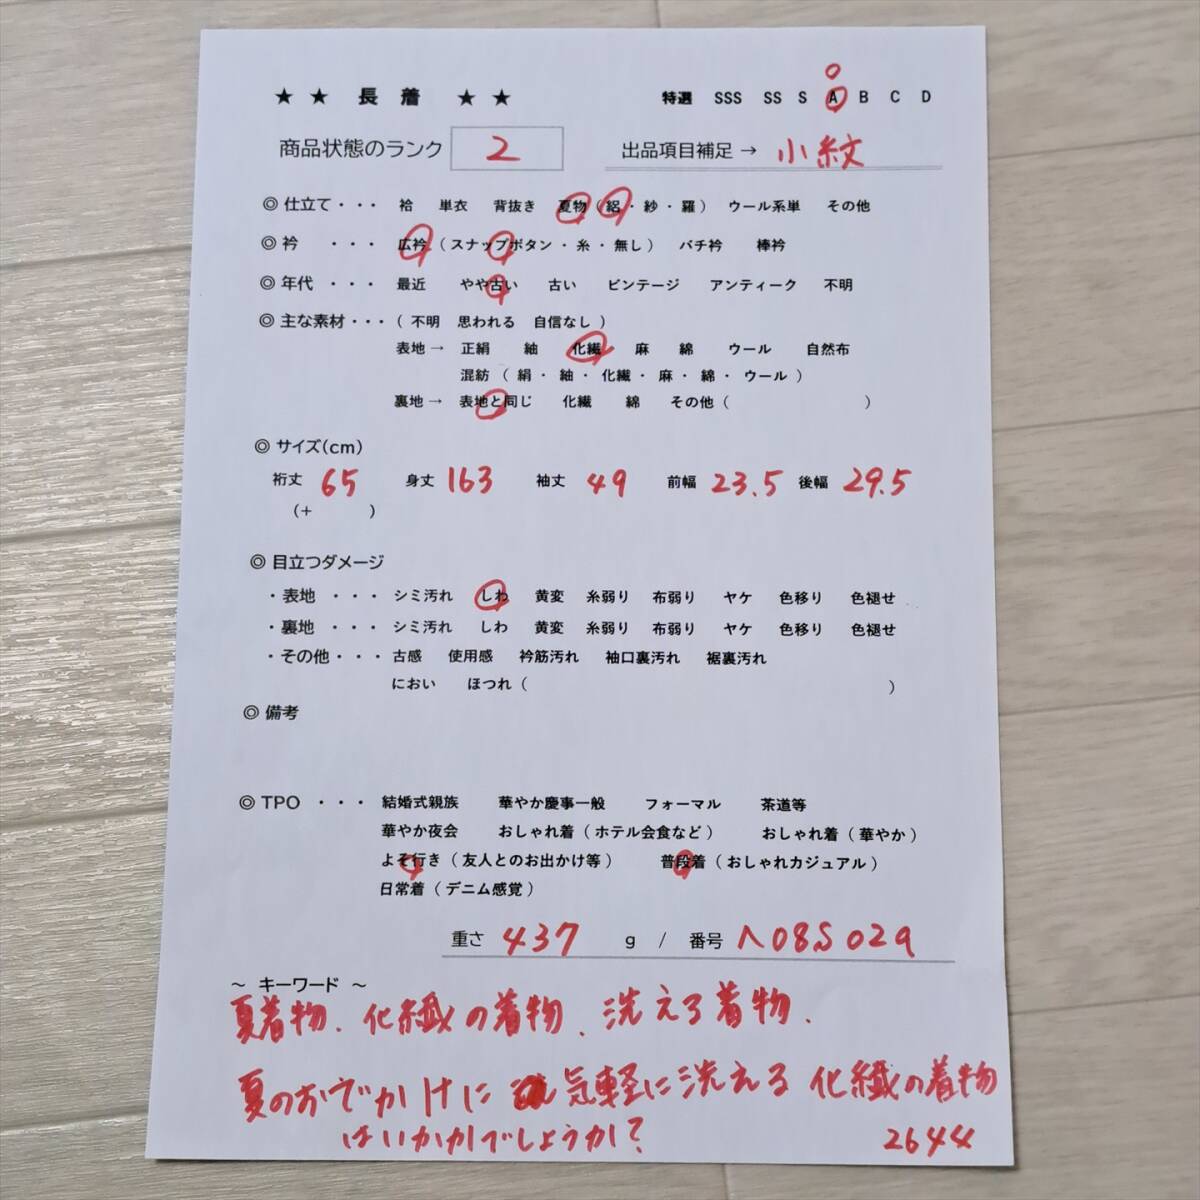 ★ ★ 長 着 ★ ★ 特選 SSS SS S A B C D
商品状態のランク 2 出品項目補足 → 小紋
◎ 仕立て・・・ 袷 単衣 背抜き 夏物（絽・紗・羅） ウール系単 その他
◎ 衿 ・・・ 広衿（スナップボタン・糸・無し） バチ衿 棒衿
◎ 年代 ・・・ 最近 やや古い 古い ビンテージ アンティーク 不明
◎ 主な素材・・・（不明 思われる 自信なし）
表地→ 正絹 紬 化繊 麻 綿 ウール 自然布
混紡（絹・紬・化繊・麻・綿・ウール）
裏地→ 表地と同じ 化繊 綿 その他（ ）
◎ サイズ(cm)
裄丈 65 身丈 163 袖丈 49 前幅 23.5 後幅 29.5
（+ ）
◎ 目立つダメージ
・表地 ・・・ シミ汚れ しわ 黄変 糸弱り 布弱り ヤケ 色移り 色褪せ
・裏地 ・・・ シミ汚れ しわ 黄変 糸弱り 布弱り ヤケ 色移り 色褪せ
・その他・・・ 古感 使用感 衿筋汚れ 袖口裏汚れ 裾裏汚れ
におい ほつれ（ ）
◎ 備考
◎ TPO ・・・ 結婚式親族 華やか慶事一般 フォーマル 茶道等
華やか夜会 おしゃれ着（ホテル会食など） おしゃれ着（華やか）
よそ行き（友人とのお出かけ等） 普段着（おしゃれカジュアル）
日常着（デニム感覚）
重さ 437 g / 番号 A08S029
～ キーワード ～
夏着物、化繊の着物、洗える着物、
夏のおでかけに 気軽に洗える 化繊の着物
はいかがでしょうか？ 2644